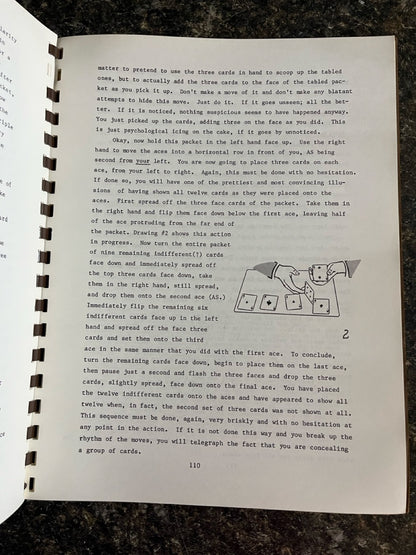 matter to pretend to use the three cards in hand to scoop up the tabled
ones, but to actually add the three cards to the face of the tabled pac-
ket as you pick it up. Don't make a move of it and don't make any blatant
attempts to hide this move. Just do it. If it goes unseen; all the bet-
ter. If it is noticed, nothing suspicious seems to have happened anyway.
You just picked up the cards, adding three on the face as you did. This
is just psychological icing on the cake, if it goes by unnoticed.
Okay, now hold this packet in the left hand face up. Use the right
hand to move the aces into a horizontal row in front of you, AS being
second from your left. You are now going to place three cards on each
ace, from your left to right. Again, this must be done with no hesitation.
If done so, you will have one of the prettiest and most convincing illu-
sions of having shown all twelve cards as they were placed onto the
aces. First spread off the three face cards of the packet. Take them in
the right hand and flip them face down below the first ace, leaving half
of the ace protruding from the far end of
the packet. Drawing #2 shows this action
in progress. Now turn the entire packet
of nine remaining indifferent(!) cards
face down and immediately spread off
the top three cards face down, take
them in the right hand, still spread,
and drop them onto the second ace (AS.)
Immediately flip the remaining six
indifferent cards face up in the left
hand and spread off the face three
cards and set them onto the third
ace in the same manner that you did with the first ace. To conclude,
turn the remaining cards face down, begin to place them on the last ace,
then pause just a second and flash the three faces and drop the three
cards, slightly spread, face down onto the final ace. You have placed
the twelve indifferent cards onto the aces and have appeared to show all
twelve when, in fact, the second set of three cards was not shown at all.
This sequence must be done, again, very briskly and with no hesitation at
any point in the action. If it is not done this way and you break up the
rhythm of the moves, you will telegraph the fact that you are concealing
a group of cards.
2
110